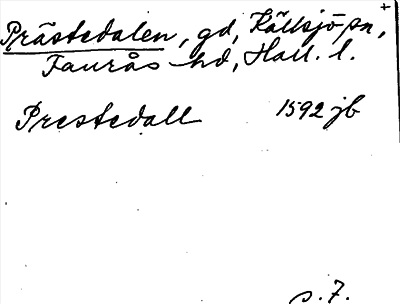 Prästedalen, gd, Källsjö sn, +
Faurås hd, Hall. l.
Prestedall 1592 jb
s. 7.